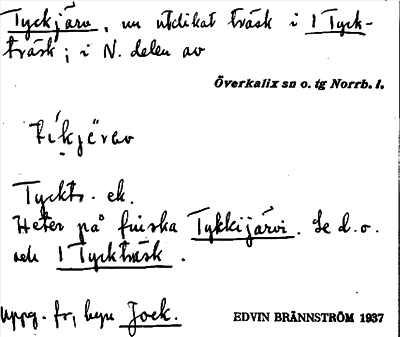 Tyckjärv, nu utdikat träsk i 1 Tyck-
träsk; i N. delen av
Överkalix sn o. tg Norrb. l.
Tycktr. ek.
Heter på finska Tykkijärvi. Se d.o.
och 1 Tyckträsk.
Uppg. fr, byn Jock.
EDVIN BRÄNNSTRÖM 1937